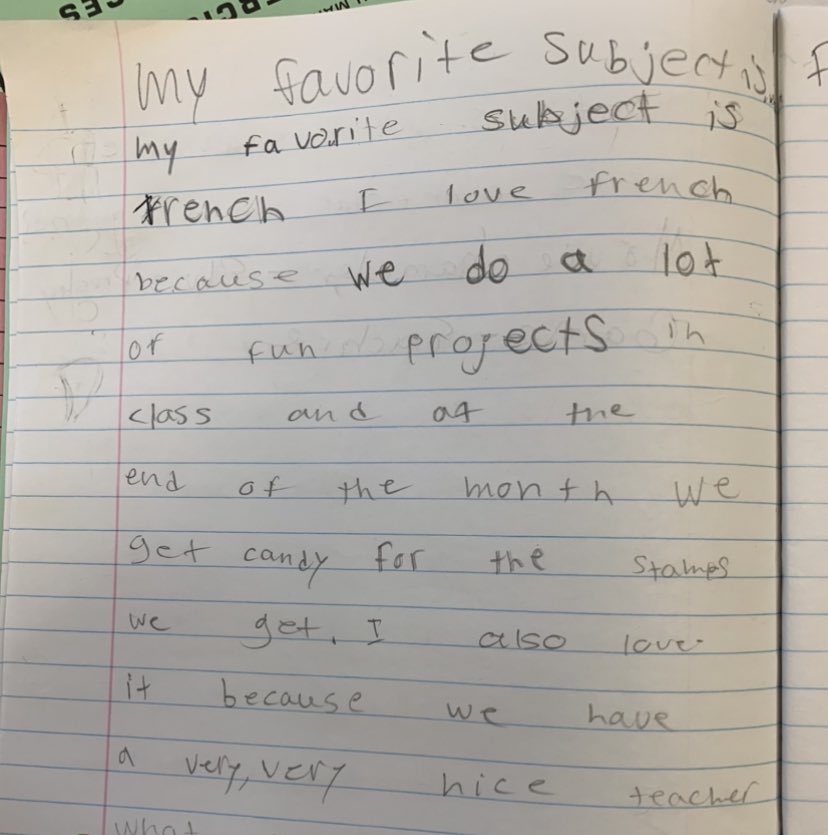 My favorite subject is
my favorite subject is
french I love french
because we do a lot
of fun projects in
class and at the
end of the month we
get candy for the stamps
we get. I also love
it because we have
a very, very nice teacher
what